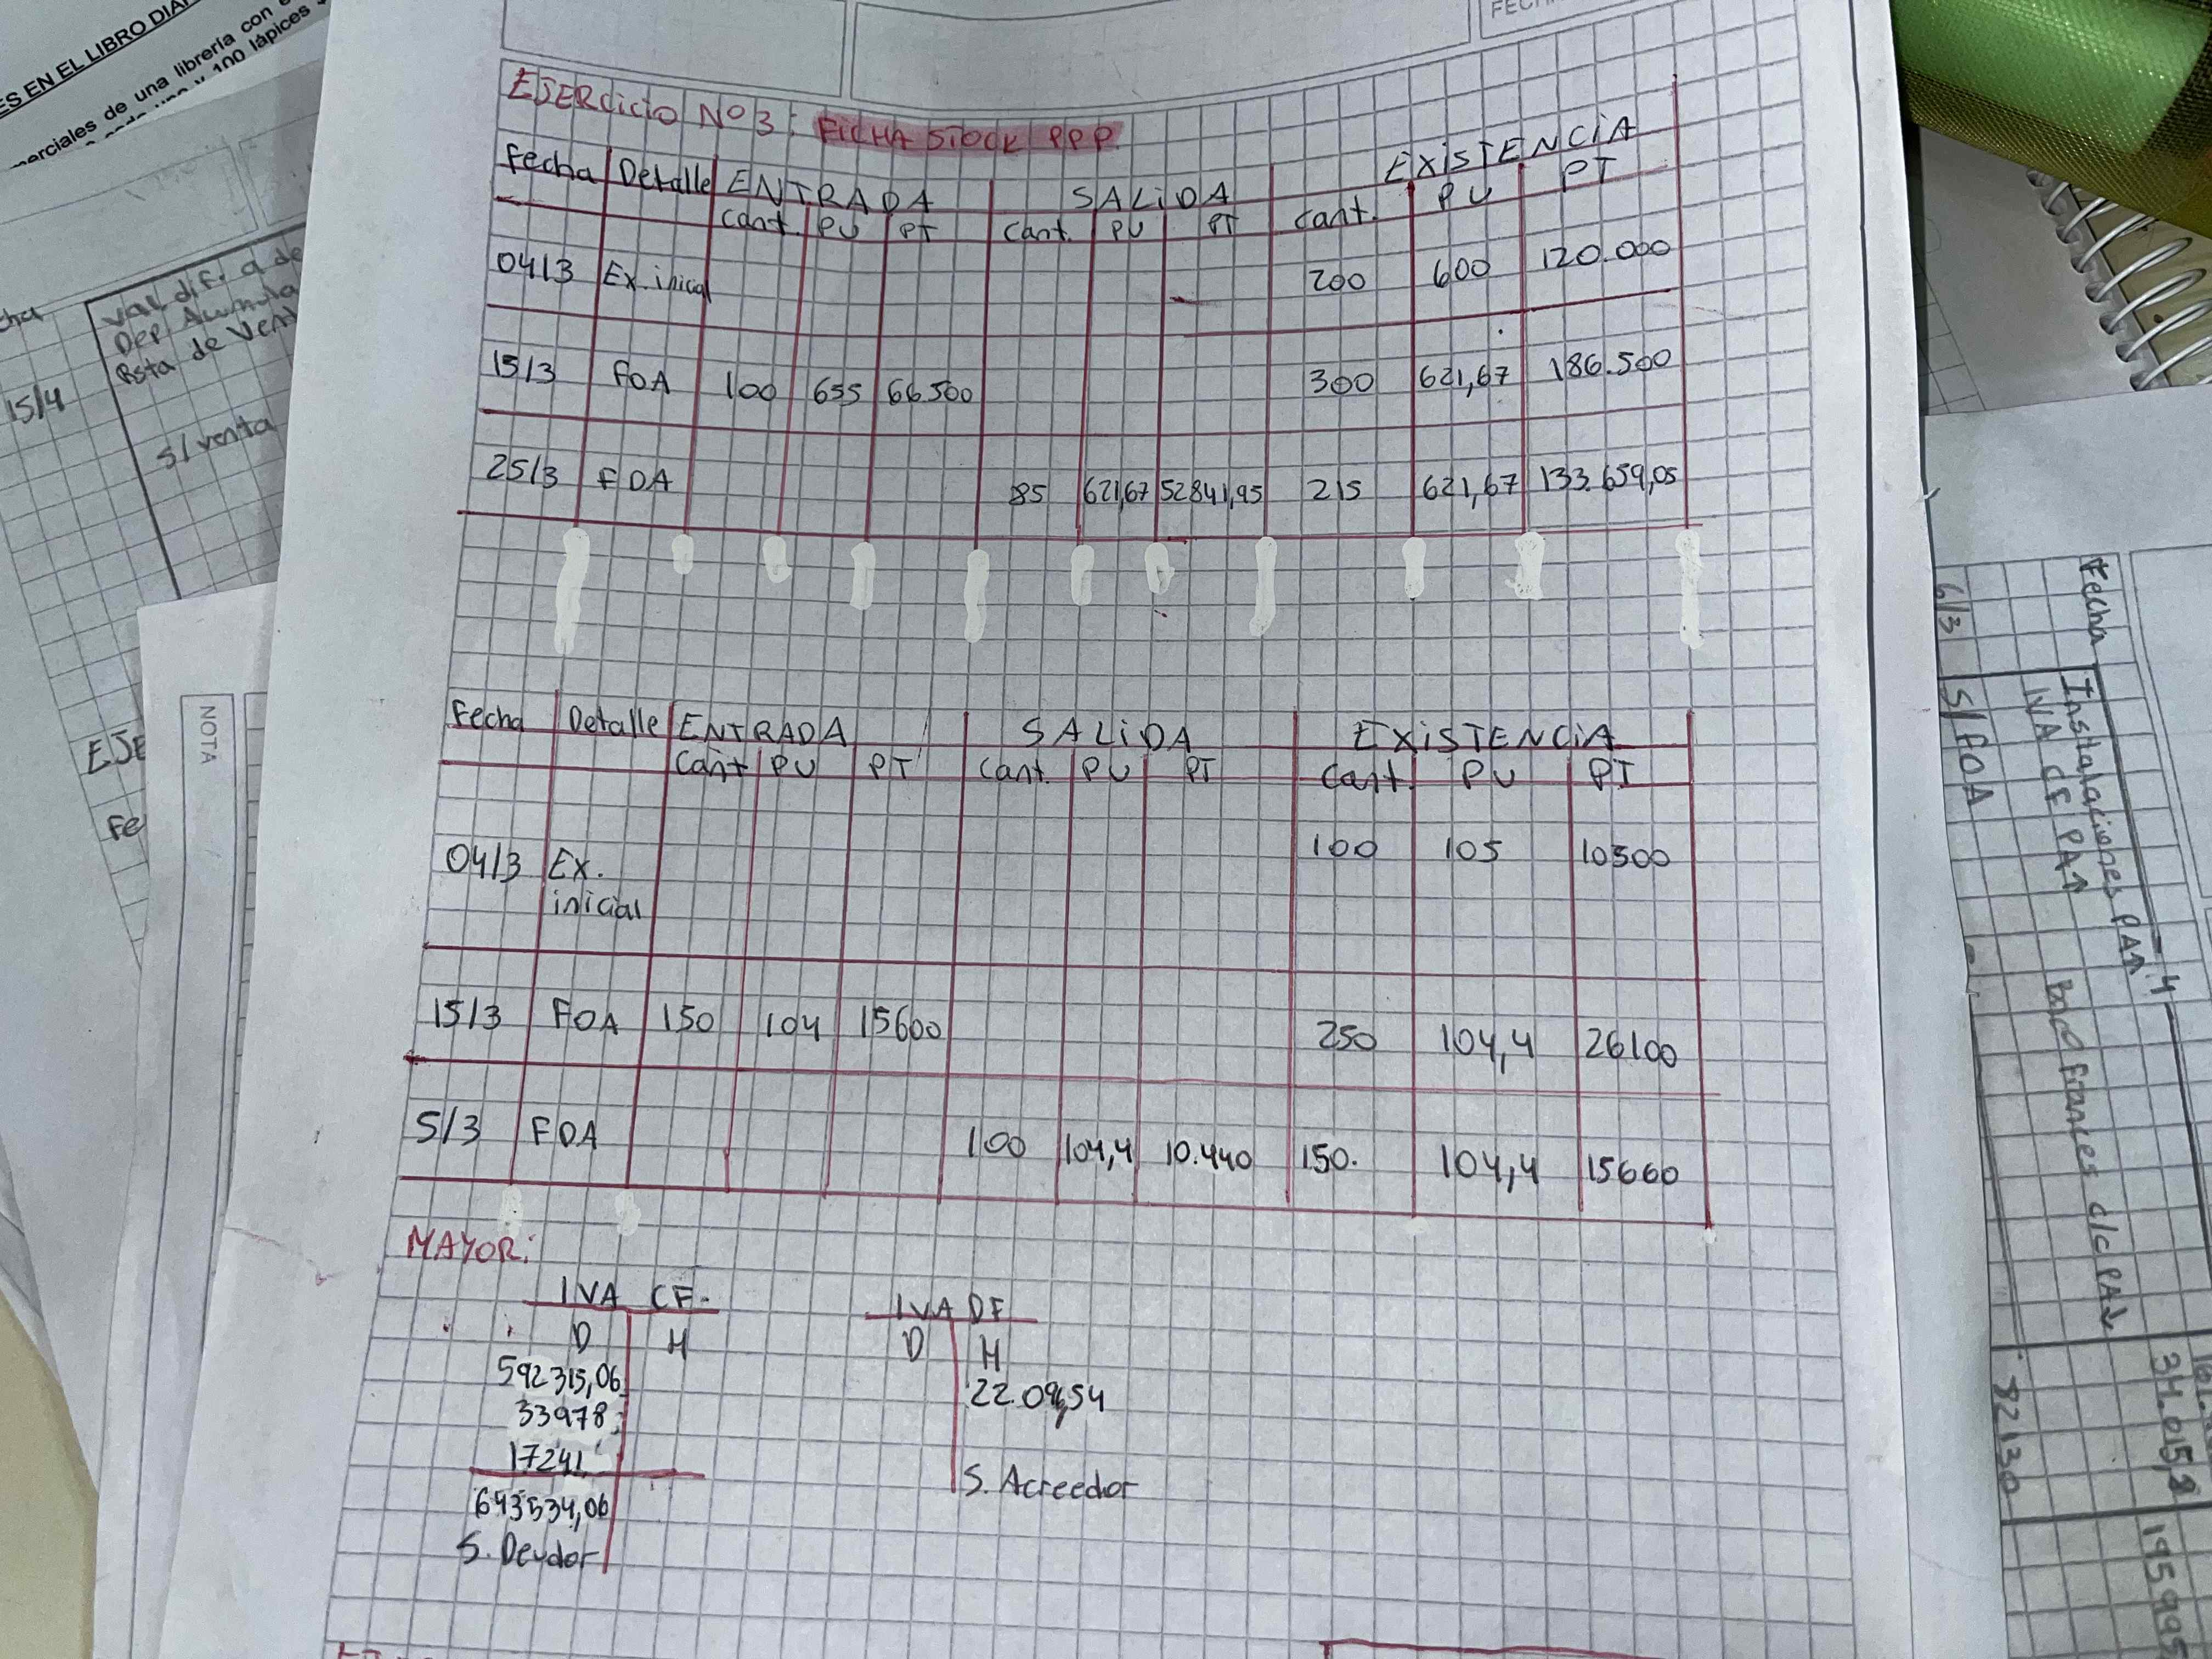 ES EN EL LIBRO DIA
erciales de una librería con
100 lápices
FECH
EJERCiCiO Nº3: FiCHA STOCK PPP
Fecha Detalle ENTRADA SALiDA EXiSTENCiA
Cant. PU PT Cant. PU PT Cant. PU PT
04/3 Ex. inicial 200 600 120.000
15/3 FOA 100 655 66.500 300 621,67 186.500
25/3 FDA 85 621,67 52841,95 215 621,67 133.659,05
Fecha Detalle ENTRADA SALiDA EXiSTENCiA
Cant PU PT Cant. PU PT Cant. PU PT
04/3 Ex. 100 105 10500
inicial
15/3 FOA 150 104 15600 250 104,4 26100
5/3 FDA 100 104,4 10.440 150. 104,4 15660
MAYOR:
IVA CF. IVA DF
D H D H
592315,06 22.09,54
33978
17241
643534,06 S. Acreedor
S. Deudor
cha
Val. dif. a de
Dep. Acumula
Rsta de Vent
15/4
s/ venta
EJE
Fe
NOTA
Fecha
6/3
Instalaciones PA↑
IVA CF PA↑
Bnco frances c/c PA↓
S/FOA
4
82130
34.015,8
195995